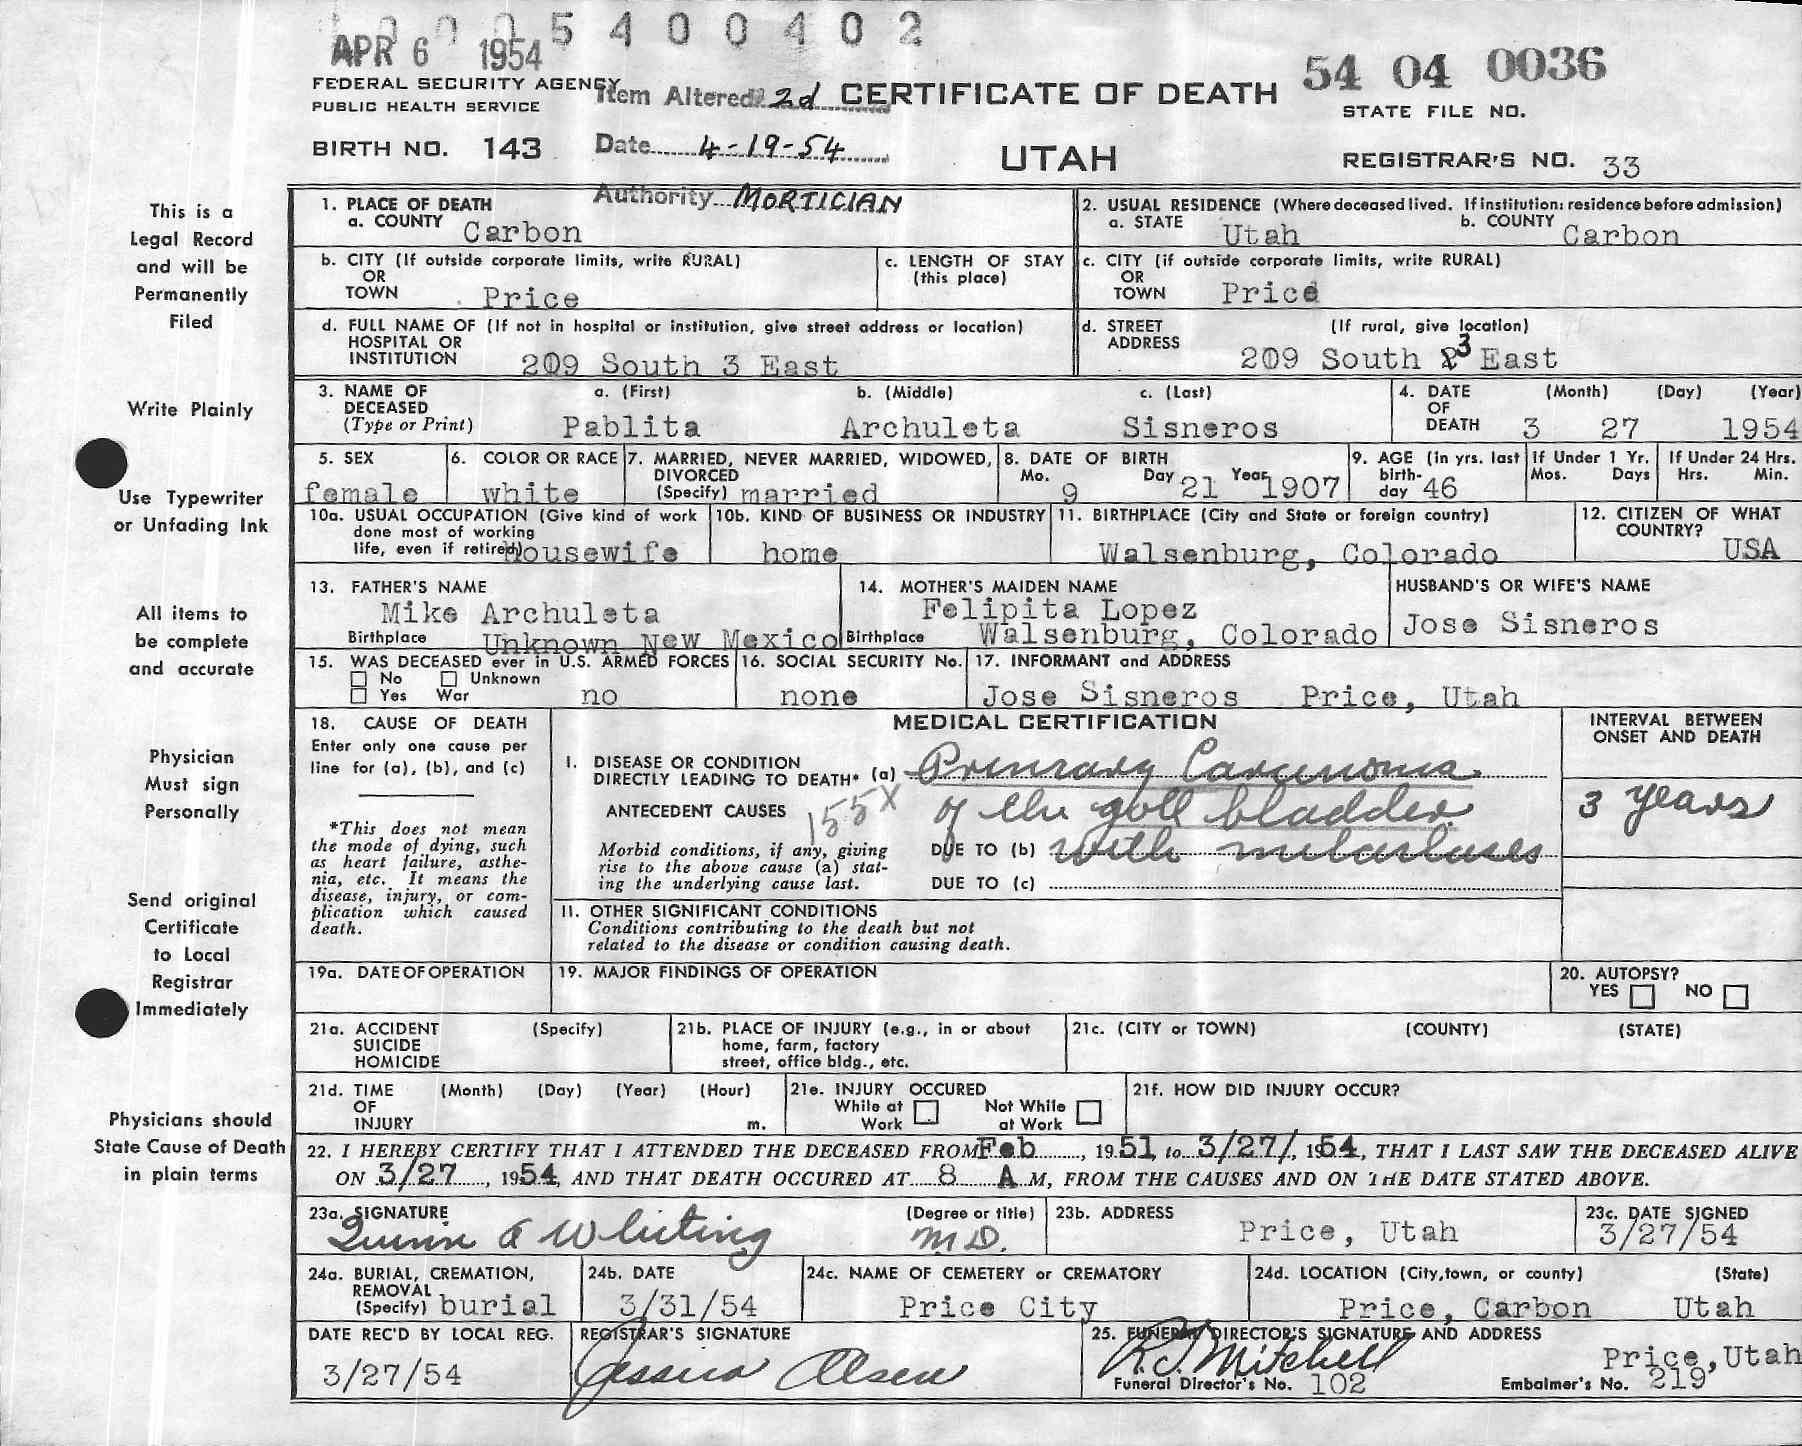 0 0 0 5 4 0 0 4 0 2
APR 6 1954
54 04 0036
FEDERAL SECURITY AGENCY
PUBLIC HEALTH SERVICE
Item Altered 2d
CERTIFICATE OF DEATH
STATE FILE NO.
BIRTH NO. 143
Date 4-19-54
UTAH
REGISTRAR'S NO. 33
Authority MORTICIAN
This is a
Legal Record
and will be
Permanently
Filed
Write Plainly
Use Typewriter
or Unfading Ink
All items to
be complete
and accurate
Physician
Must sign
Personally
Send original
Certificate
to Local
Registrar
Immediately
Physicians should
State Cause of Death
in plain terms
1. PLACE OF DEATH
a. COUNTY Carbon
2. USUAL RESIDENCE (Where deceased lived. If institution: residence before admission)
a. STATE Utah b. COUNTY Carbon
b. CITY (If outside corporate limits, write RURAL)
OR
TOWN Price
c. LENGTH OF STAY
(this place)
c. CITY (if outside corporate limits, write RURAL)
OR
TOWN Price
d. FULL NAME OF (If not in hospital or institution, give street address or location)
HOSPITAL OR
INSTITUTION 209 South 3 East
d. STREET (If rural, give location)
ADDRESS
209 South 3 East
3. NAME OF DECEASED (Type or Print)
a. (First) b. (Middle) c. (Last)
Pablita Archuleta Sisneros
4. DATE OF DEATH (Month) (Day) (Year)
3 27 1954
5. SEX
female
6. COLOR OR RACE
white
7. MARRIED, NEVER MARRIED, WIDOWED,
DIVORCED
(Specify) married
8. DATE OF BIRTH
Mo. 9 Day 21 Year 1907
9. AGE (in yrs. last
birth-
day 46
If Under 1 Yr.
Mos. Days
If Under 24 Hrs.
Hrs. Min.
10a. USUAL OCCUPATION (Give kind of work
done most of working
life, even if retired) housewife
10b. KIND OF BUSINESS OR INDUSTRY
home
11. BIRTHPLACE (City and State or foreign country)
Walsenburg, Colorado
12. CITIZEN OF WHAT
COUNTRY?
USA
13. FATHER'S NAME
Mike Archuleta
Birthplace Unknown New Mexico
14. MOTHER'S MAIDEN NAME
Felipita Lopez
Birthplace Walsenburg, Colorado
HUSBAND'S OR WIFE'S NAME
Jose Sisneros
15. WAS DECEASED ever in U.S. ARMED FORCES
No Unknown
Yes War no
16. SOCIAL SECURITY No.
none
17. INFORMANT and ADDRESS
Jose Sisneros Price, Utah
18. CAUSE OF DEATH
Enter only one cause per
line for (a), (b), and (c)
*This does not mean
the mode of dying, such
as heart failure, asthe-
nia, etc. It means the
disease, injury, or com-
plication which caused
death.
MEDICAL CERTIFICATION
I. DISEASE OR CONDITION
DIRECTLY LEADING TO DEATH* (a) Primary Carcinoma
ANTECEDENT CAUSES 155X of the gall bladder
Morbid conditions, if any, giving
rise to the above cause (a) stat-
ing the underlying cause last.
DUE TO (b) with metastases
DUE TO (c)
INTERVAL BETWEEN
ONSET AND DEATH
3 years
II. OTHER SIGNIFICANT CONDITIONS
Conditions contributing to the death but not
related to the disease or condition causing death.
19a. DATE OF OPERATION
19. MAJOR FINDINGS OF OPERATION
20. AUTOPSY?
YES NO
21a. ACCIDENT (Specify)
SUICIDE
HOMICIDE
21b. PLACE OF INJURY (e.g., in or about
home, farm, factory
street, office bldg., etc.
21c. (CITY or TOWN) (COUNTY) (STATE)
21d. TIME (Month) (Day) (Year) (Hour)
OF
INJURY m.
21e. INJURY OCCURED
While at Work Not While at Work
21f. HOW DID INJURY OCCUR?
22. I HEREBY CERTIFY THAT I ATTENDED THE DECEASED FROM Feb, 1951, to 3/27/, 1954, THAT I LAST SAW THE DECEASED ALIVE
ON 3/27, 1954, AND THAT DEATH OCCURED AT 8 A M, FROM THE CAUSES AND ON THE DATE STATED ABOVE.
23a. SIGNATURE (Degree or title)
Quinn A Whiting M.D.
23b. ADDRESS
Price, Utah
23c. DATE SIGNED
3/27/54
24a. BURIAL, CREMATION,
REMOVAL
(Specify) burial
24b. DATE
3/31/54
24c. NAME OF CEMETERY or CREMATORY
Price City
24d. LOCATION (City, town, or county) (State)
Price, Carbon Utah
DATE REC'D BY LOCAL REG.
3/27/54
REGISTRAR'S SIGNATURE
Jessica Olsen
25. FUNERAL DIRECTOR'S SIGNATURE AND ADDRESS
R.J. Mitchell Price, Utah
Funeral Director's No. 102 Embalmer's No. 219